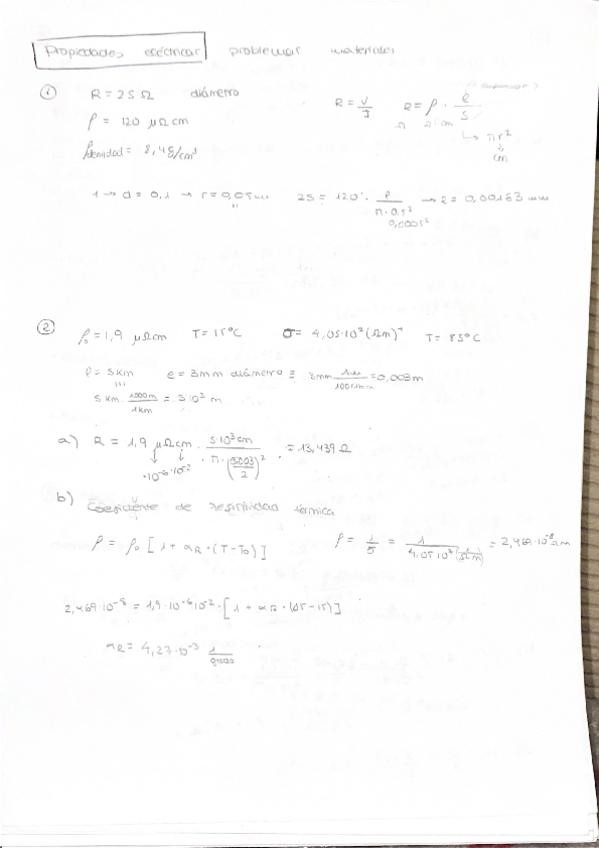 Propiedades eléctricas problemas materiales
① R = 25 Ω diámetro R = V/I R = ρ · l/S
ρ = 120 μΩ cm Ω → πr²
ρdensidad = 8,4 g/cm³ cm
1 → d = 0,1 → r = 0,05 25 = 120 · l/(π · 0,05²) → l = 0,00163 mm
0,0005²
② ρ₀ = 1,9 μΩcm T = 15°C σ = 4,05·10⁷ (Ωm)⁻¹ T = 85°C
l = 5 km e = 3mm diámetro = 3mm · 1m/1000mm = 0,003m
5 km · 1000m/1km = 5·10³ m
a) R = 1,9 μΩcm · 5·10³ cm/(π · (0,003/2)²) = 13,439 Ω
·10⁻⁶·10⁻²
b) Coeficiente de resistividad térmica
ρ = ρ₀ [1 + αR · (T - T₀)] ρ = 1/σ = 1/(4,05·10⁷ (1/Ωm)) = 2,469·10⁻⁸ Ωm
2,469·10⁻⁸ = 1,9·10⁻⁶·10⁻² · [1 + αR · (85-15)]
αR = 4,27·10⁻³